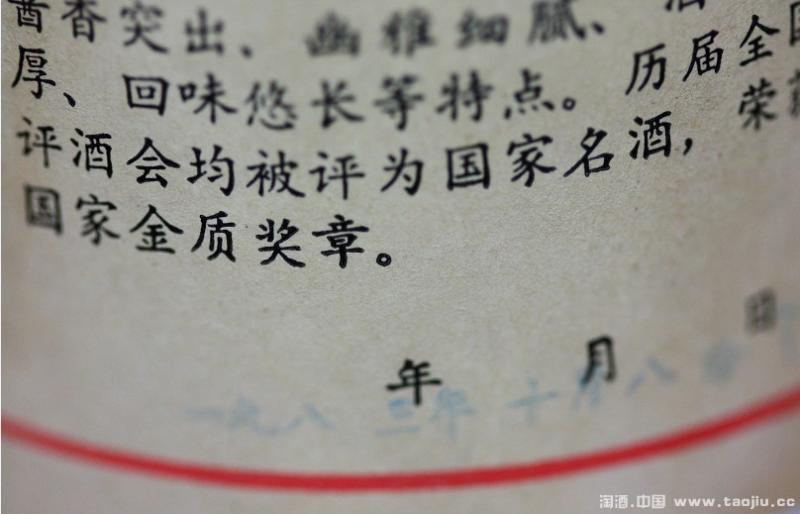 酱香突出、幽雅细腻、酒
厚、回味悠长等特点。历届全国
评酒会均被评为国家名酒,荣
国家金质奖章。
年 月 日
一九八三年十月八
淘酒.中国 www.taojiu.cc